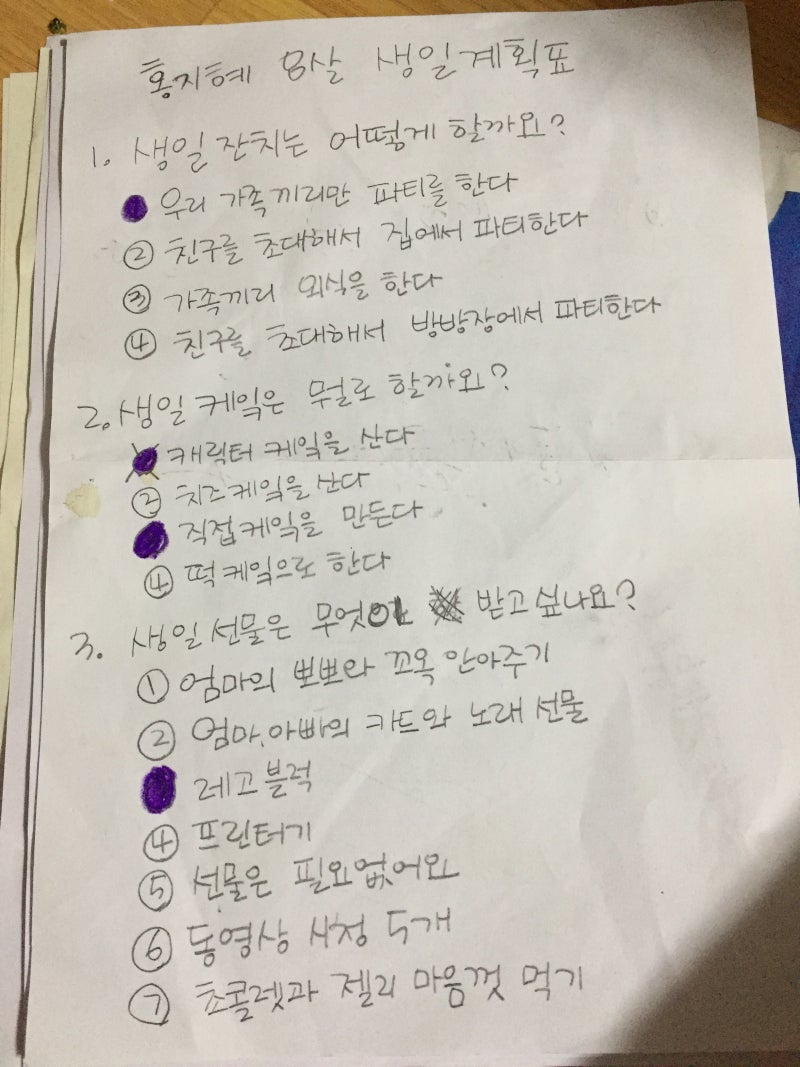 홍지혜 8살 생일계획표
1. 생일 잔치는 어떻게 할까요?
우리 가족끼리만 파티를 한다
② 친구를 초대해서 집에서 파티한다
③ 가족끼리 외식을 한다
④ 친구를 초대해서 방방장에서 파티한다
2. 생일 케익은 뭘로 할까요?
캐릭터 케익을 산다
② 치즈케익을 산다
직접케익을 만든다
④ 떡케익으로 한다
3. 생일 선물은 무엇이 받고 싶나요?
① 엄마의 뽀뽀와 꼬옥 안아주기
② 엄마, 아빠의 카드와 노래 선물
레고블럭
④ 프린터기
⑤ 선물은 필요없어요
⑥ 동영상 시청 두개
⑦ 초콜렛과 젤리 마음껏 먹기